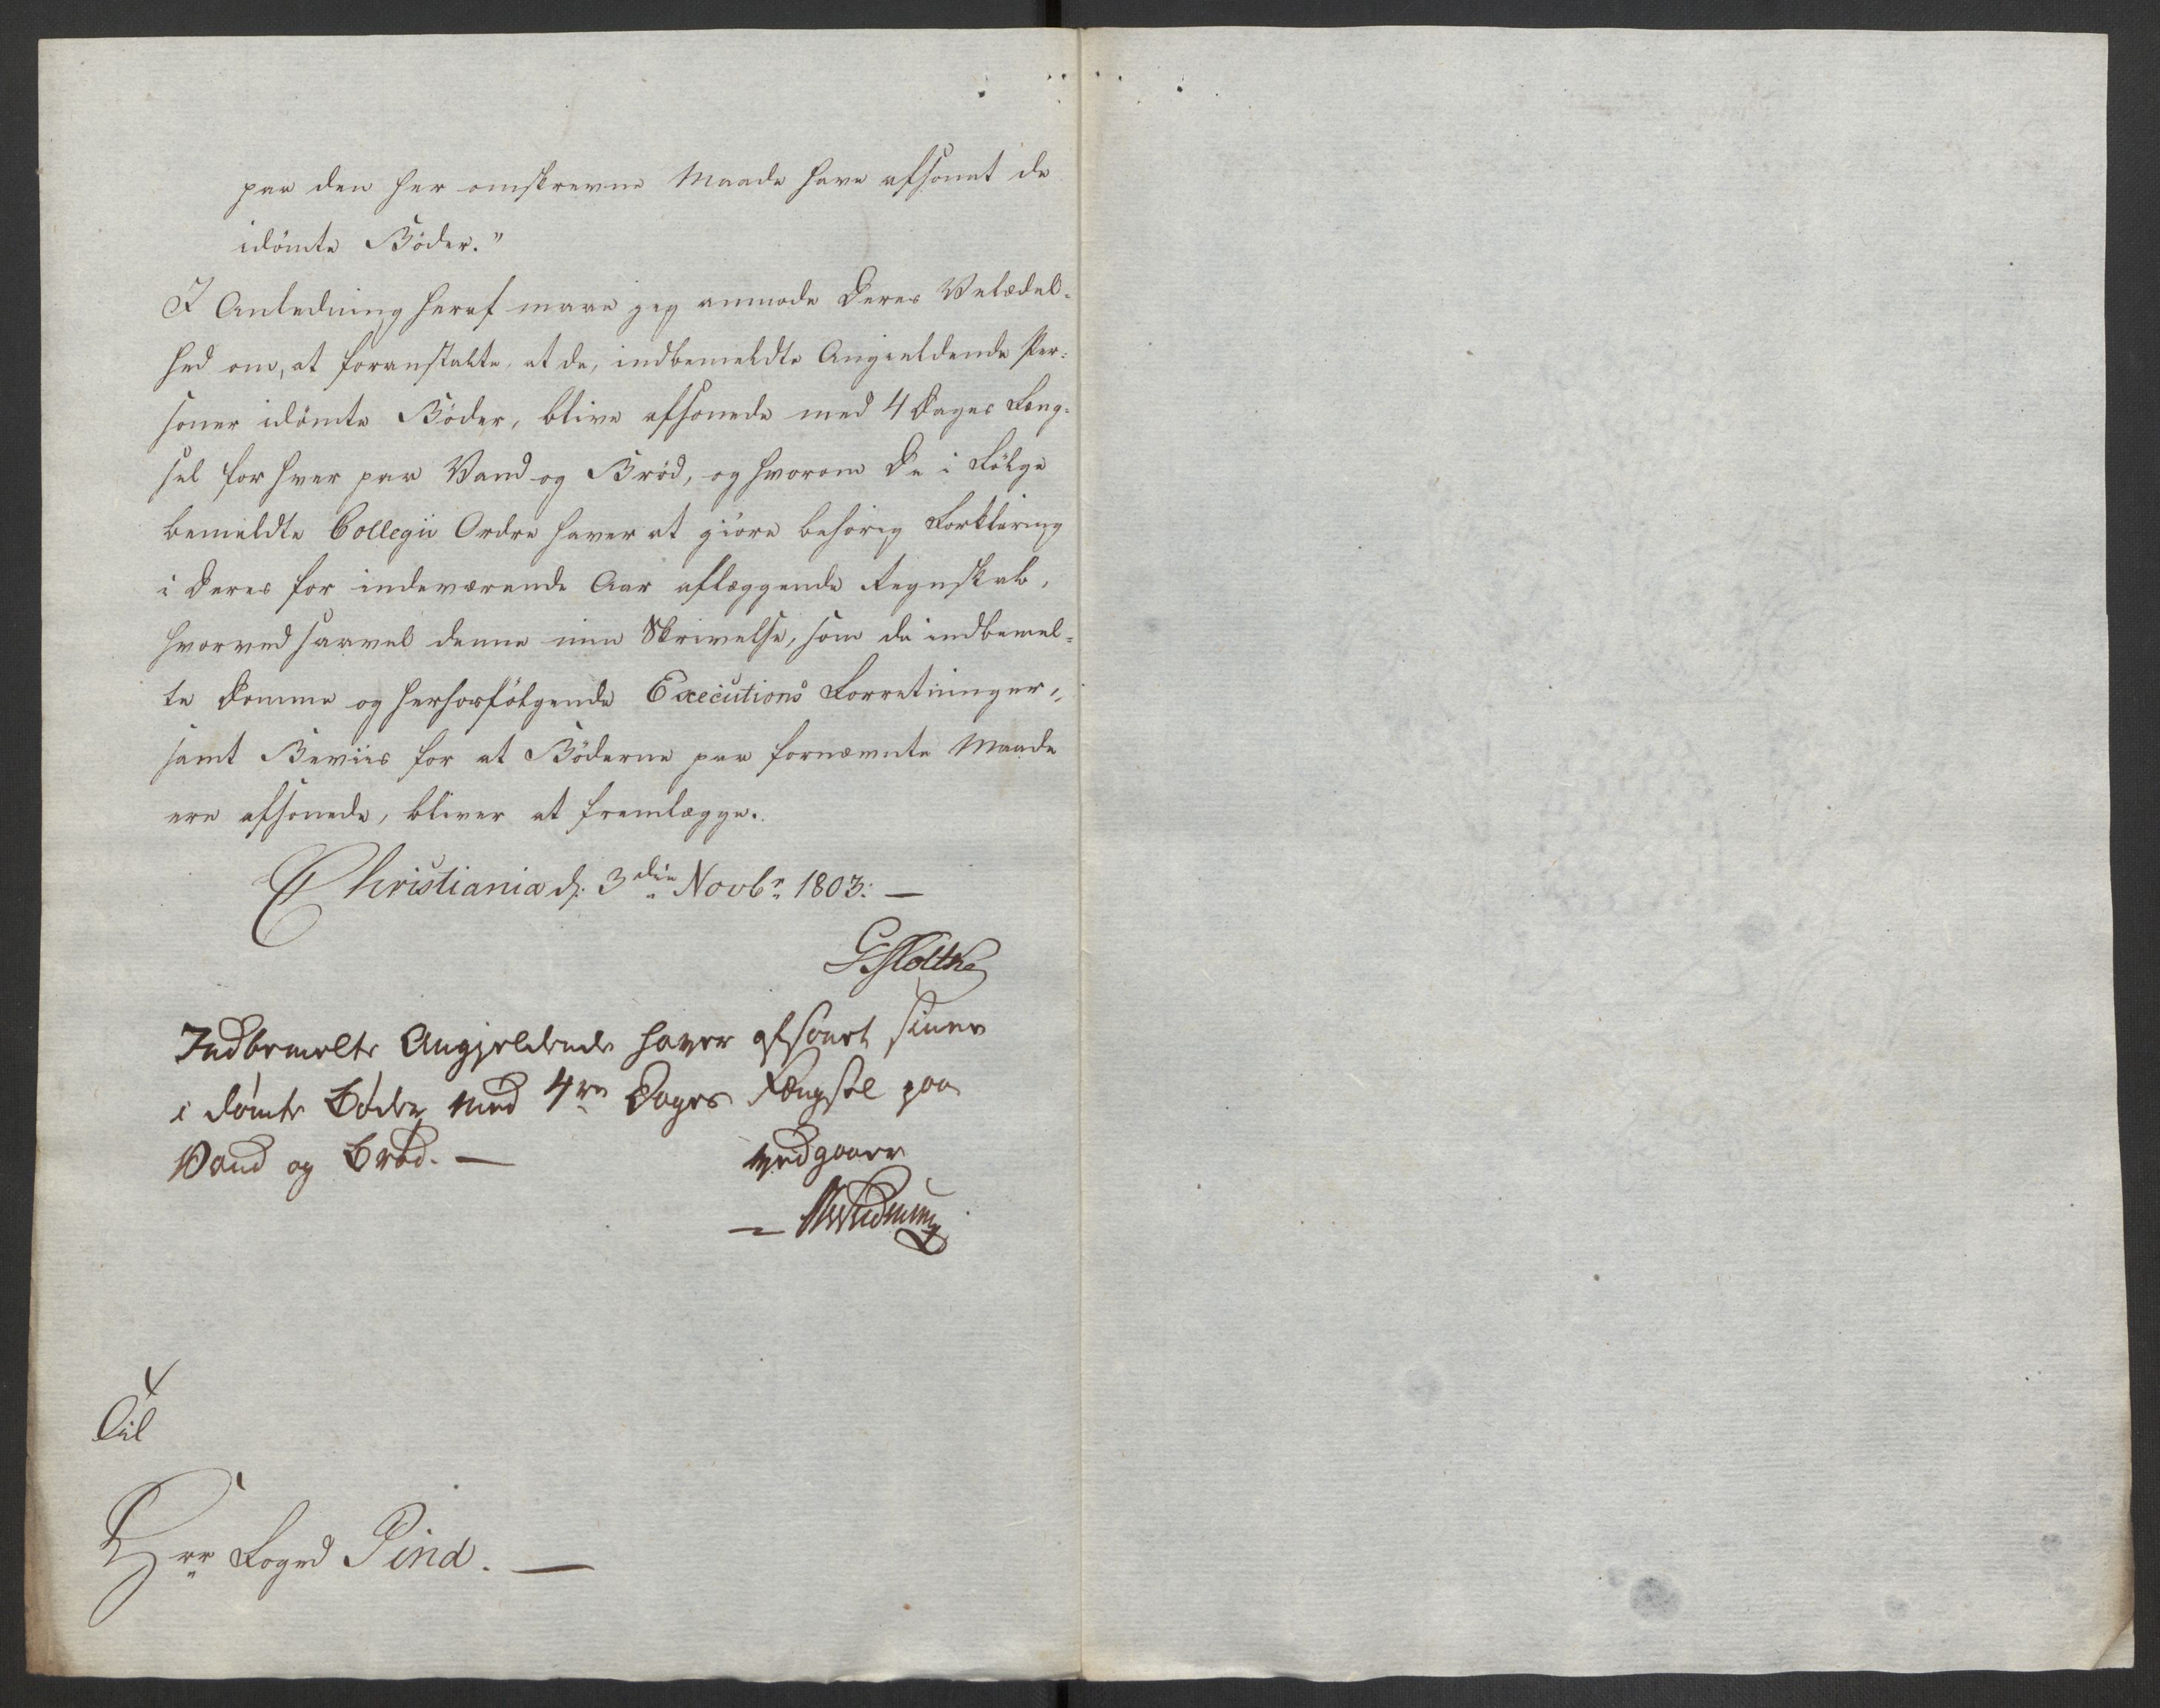 paa den her omskrevne Maade have afsonet de
idömte Böder."
I Anledning heraf maae jeg anmode Deres Velædel-
hed om, at foranstalte, at de, indbemeldte Angieldende Per-
soner idömte Böder, blive afsonede med 4 Dages Fæng-
sel for hver paa Vand og Bröd, og hvorom De i Fölge
bemeldte Collegii Ordre haver at giöre behörig Forklaring
i Deres for indeværende Aar aflæggende Regnskab,
hvorved saavel denne min Skrivelse, som de indbemel-
te Domme og herhosfölgende Executions Forretninger,
samt Beviis for at Böderne paa fornævnte Maade
ere afsonede, bliver at fremlægge.
Christiania d: 3die Novbr 1803: —
G Moltke
Indbemelte Angjeldende haver afsonet sine
idömte Böder med 4re Dages Fængsel paa
Vand og Bröd. — vedgaaer
Til
Herr Foged Pind. —